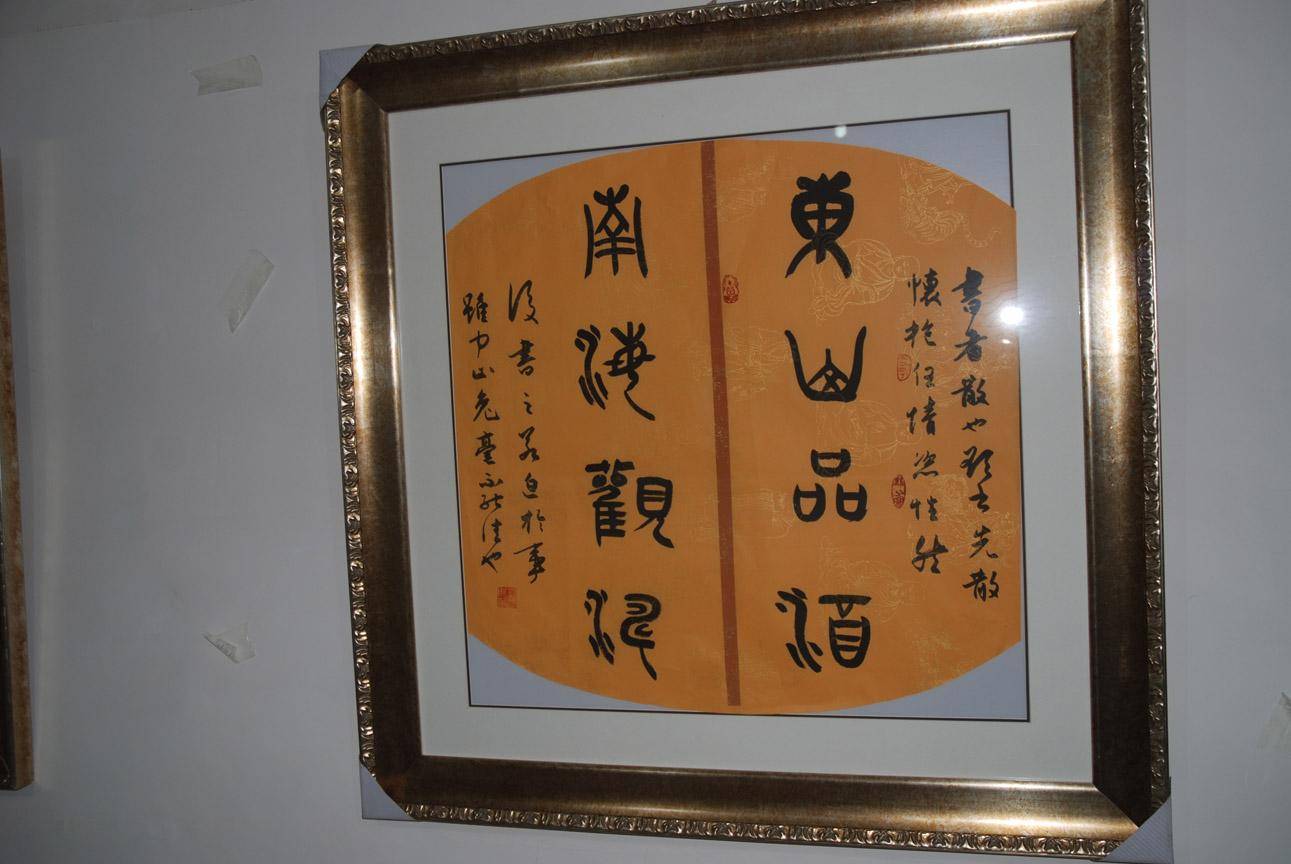 書者散也欲書先散
懷抱任情恣性然
東山品酒
南海觀
後書之若迫於事
雖中山兔毫不能佳也